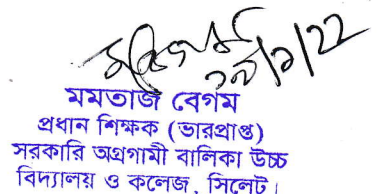 মমতাজ বেগম
প্রধান শিক্ষক (ভারপ্রাপ্ত)
সরকারি অগ্রগামী বালিকা উচ্চ
বিদ্যালয় ও কলেজ, সিলেট।